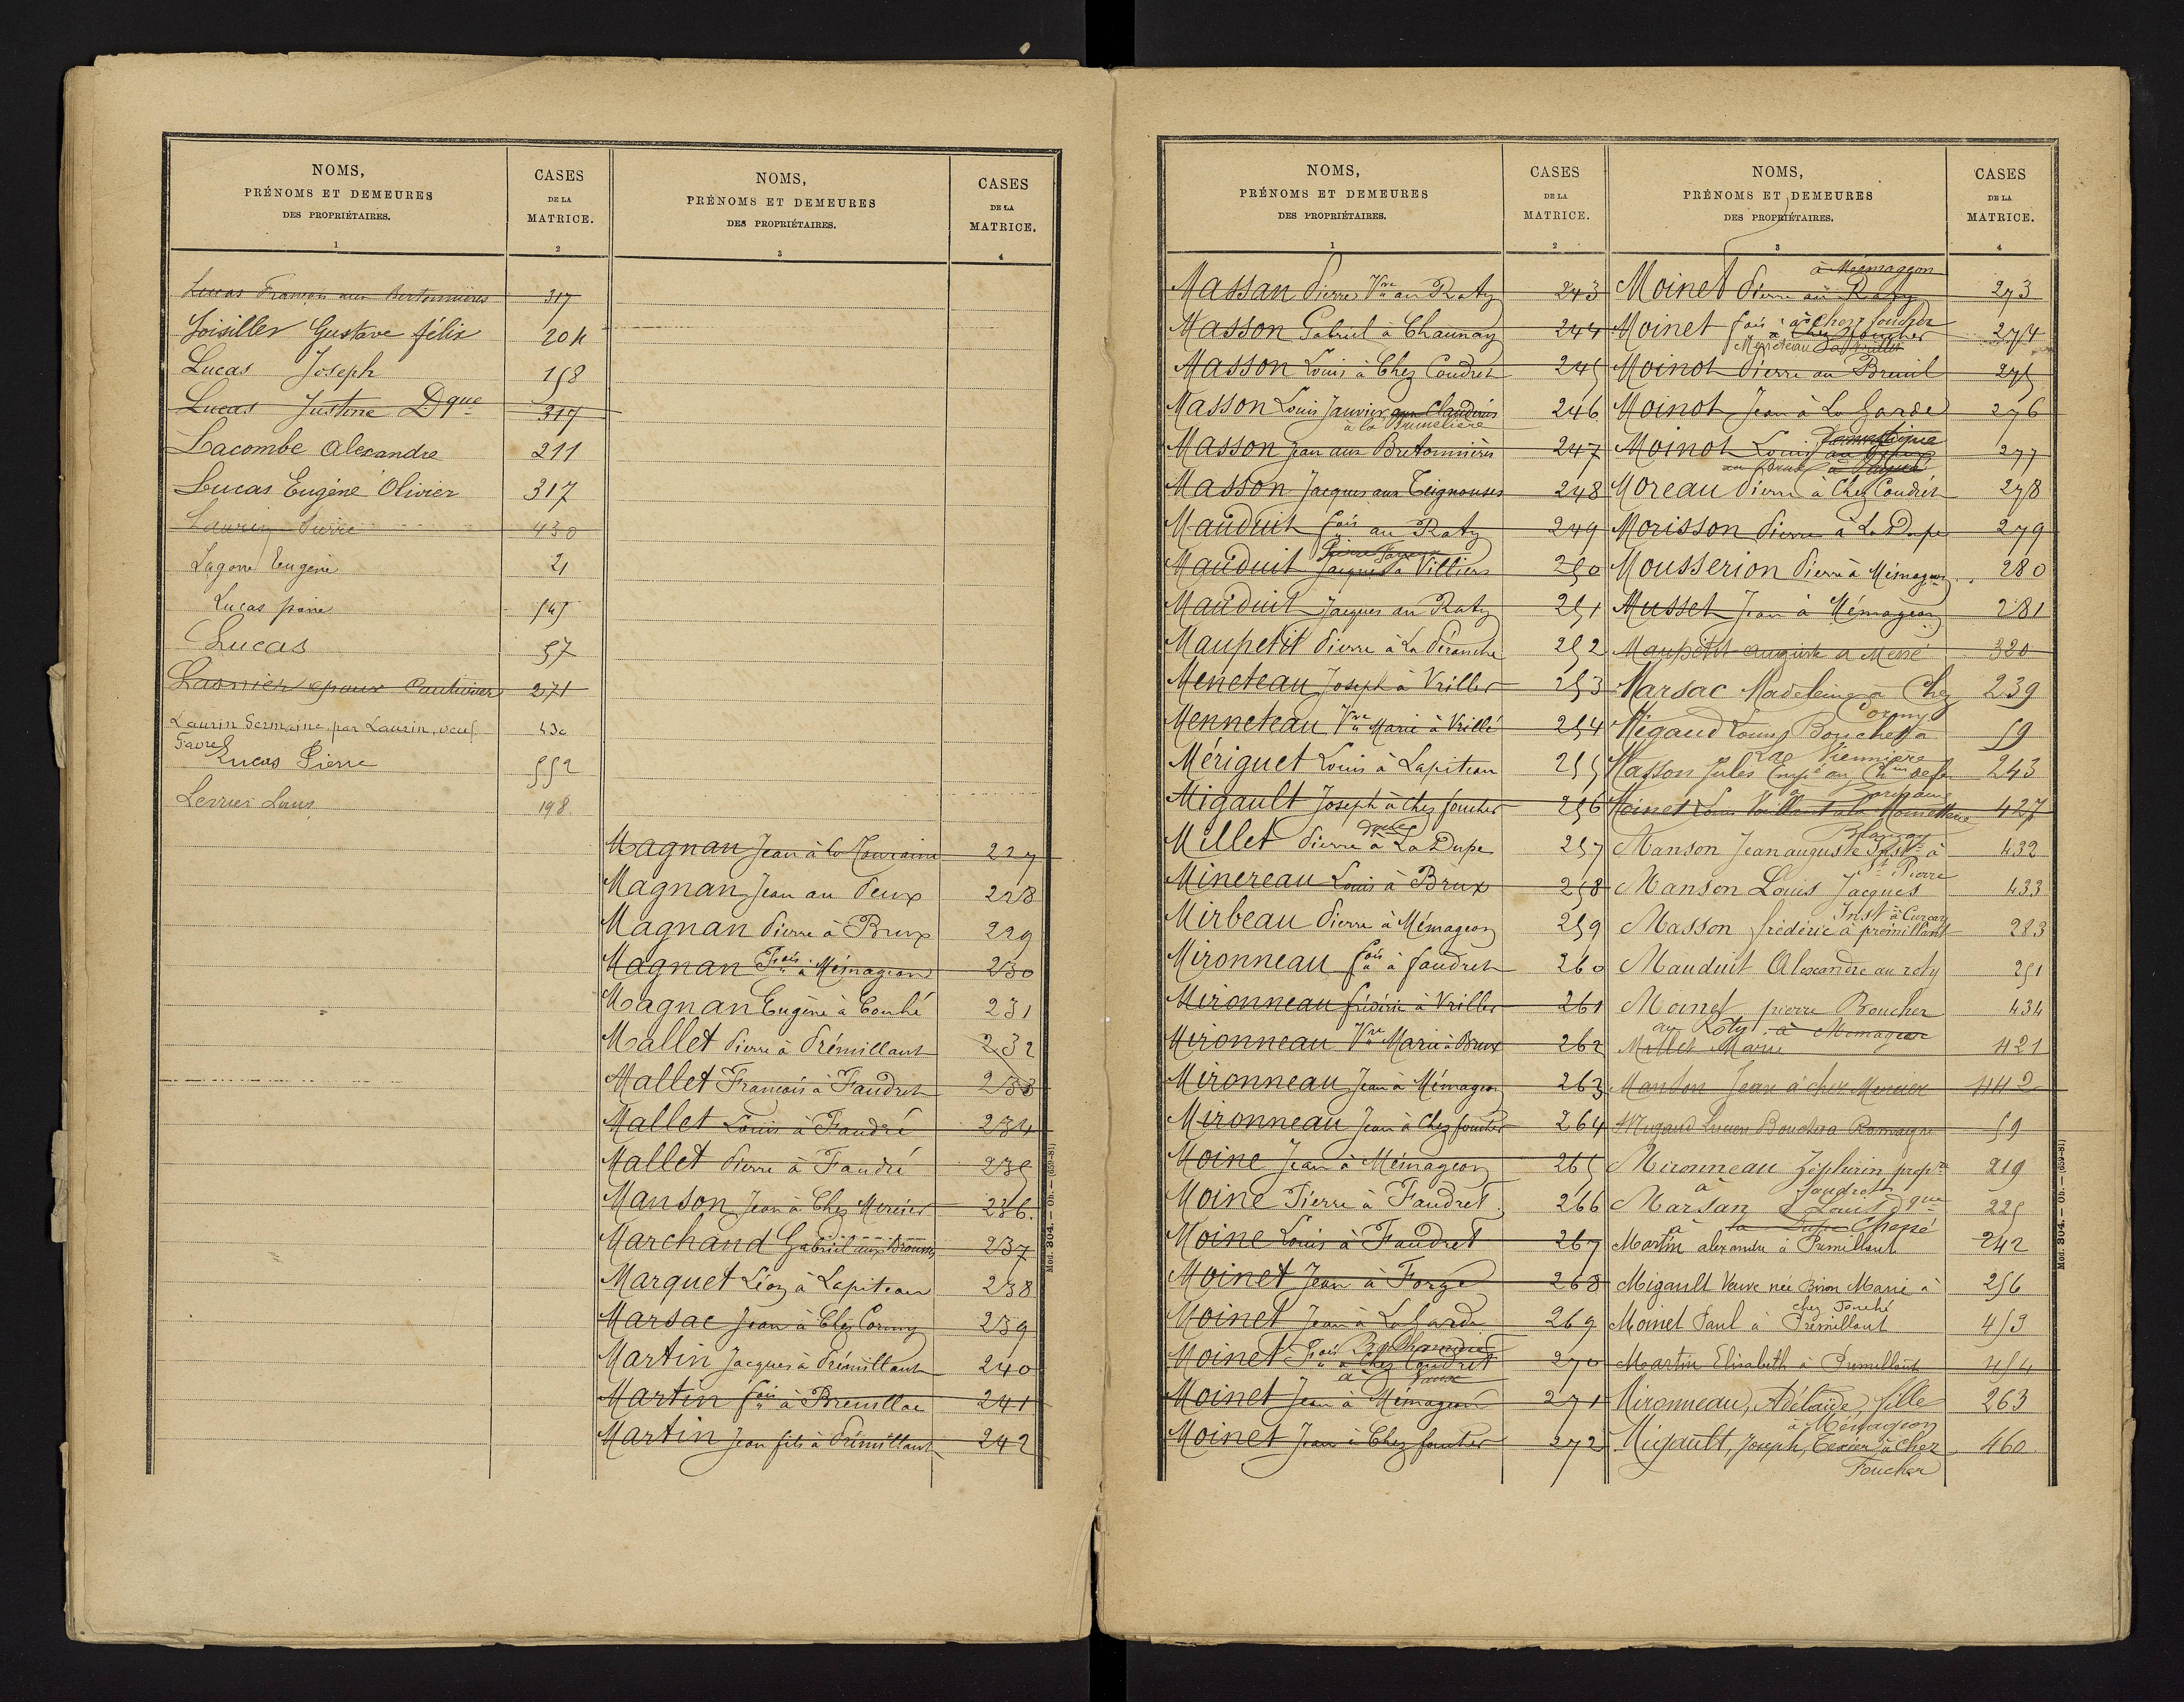 NOMS,
PRÉNOMS ET DEMEURES
DES PROPRIÉTAIRES.
1
CASES
DE LA
MATRICE.
2
Lucas François aux Bertonnières 317
Loisiller Gustave félix 204
Lucas Joseph 158
Lucas Justine Dque 317
Lacombe Alexandre 211
Lucas Eugène Olivier 317
Laurin Pierre 430
Eugène 21
Lucas 545
Lucas 57
Lasnier époux 271
Laurin Germaine, par Laurin, veuf 430
Favre
Lucas Pierre 552
Louis 198
NOMS,
PRÉNOMS ET DEMEURES
DES PROPRIÉTAIRES.
3
CASES
DE LA
MATRICE.
4
Magnan Jean à la Touraine 227
Magnan Jean au Peux 228
Magnan Pierre à Brux 229
Magnan Fois à Mémageon 230
Magnan Eugène à Couhé 231
Mallet Pierre à Prémillant 232
Mallet François à Faudret 233
Mallet Louis à Faudré 234
Mallet Pierre à Faudré 235
Manson Jean à Chez Mercier 236.
Marchand Gabriel aux 237
Marquet Léon à Lapiteau 238
Marsac Jean à Chez Cormy 239
Martin Jacques à Prémillant 240
Martin fois à Breuillac 241
Martin Jean fils à Prémillant 242
Mod. 304. — Ob. — (659-81)
NOMS,
PRÉNOMS ET DEMEURES
DES PROPRIÉTAIRES.
1
CASES
DE LA
MATRICE.
2
Massan Pierre Vve au Raty 243
Masson Gabriel à Chaunay 244
Masson Louis à Chez Coudret 245
Masson Louis Janvier aux 246
à la Brunelière
Masson Jean aux Bretonnières 247
Masson Jacques aux Teignouses 248
Mauduit fois au Raty 249
Pierre
Mauduit Jacques à Villiers 250
Mauduit Jacques au Raty 251
Maupetit Pierre à La Péranche 252
Meneteau Joseph à Vriller 253
Menneteau Vve Marie à Vrillé 254
Mériguet Louis à Lapiteau 255
Migault Joseph à Chez foucher 256
Millet Pierre à La Dupe 257
Minereau Louis à Brux 258
Mirbeau Pierre à Mémageon 259
Mironneau fois à faudret 260
Mironneau frédéric à Vriller 261
Mironneau Vve Marie à Brux 262
Mironneau Jean à Mémageon 263
Mironneau Jean à Chez foucher 264
Moine Jean à Mémageon 265
Moine Pierre à Faudret 266
Moine Louis à Faudret 267
Moinet Jean à Forge 268
Moinet Jean à La Garde 269
Moinet Fois à Chez Coudret 270
à Vaux
Moinet Jean à Mémageon 271
Moinet Jean à Chez foucher 272
NOMS,
PRÉNOMS ET DEMEURES
DES PROPRIÉTAIRES.
3
CASES
DE LA
MATRICE.
4
à Mémageon
Moinet Pierre au Raty 273
Moinet fois à chez foucher 274
à Chez foucher
Meneteau
Moinot Pierre au Breuil 275
Moinot Jean à La Garde 276
Moinot Louis domestique 277
Moreau Pierre à Chez Coudret 278
Morisson Pierre à La Dupe 279
Mousserion Pierre à Mémageon 280
Musset Jean à Mémageon 281
Maupetit auguste à Messé 320
Marsac Madeleine à Chez 239
Cormy
Migaud Louis Boucher à 59
Masson Jules Empé au Chin de fer 243
à
Moinet Louis 427
Blanzay
Manson Jean auguste Inst à 432
St Pierre
Manson Louis Jacques 433
Inst à Curçay
Masson frédéric à prémillant 283
Mauduit Alexandre au raty 251
Moinet pierre Boucher 434
au Raty à Mémageon
Millet Marie 421
Manson Jean à chez Mercier 442
Migaud Lucien Boucher à Romagne 59
Mironneau Zéphirin propre 219
à faudret
Marsan Louis dque 225
à la Dupe Chepé
Martin alexandre à Prémillant 242
Migault Veuve née Biron Marie à 256
chez Fouché
Moinet Paul à Prémillant 453
Martin Elisabeth à Prémillant 454
Mironneau, Adélaïde, fille 263
à Mémageon
Migault, Joseph, Texier à chez 460
Foucher
Mod. 304. — Ob. — (659-81)